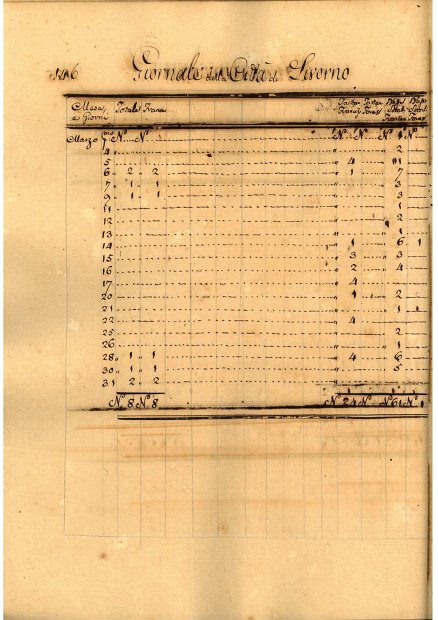 Giornale Città di Livorno
e Giorni Totale
Marzo 1mo N. N. N. N. 1 N.
4 2
5 4 1
6 2 2 1 7
7 1 1 3
9 1 1 3
11 1
12 2
13 1
14 1 6 1
15 3 3
16 2 4
17 4
20 1 2
21 1 1
22 4
25 2
26 1
28 1 1 4 6
30 1 1 5
31 2 2
N. 8 N. 8 N. 24 N. N. 61 N. 1